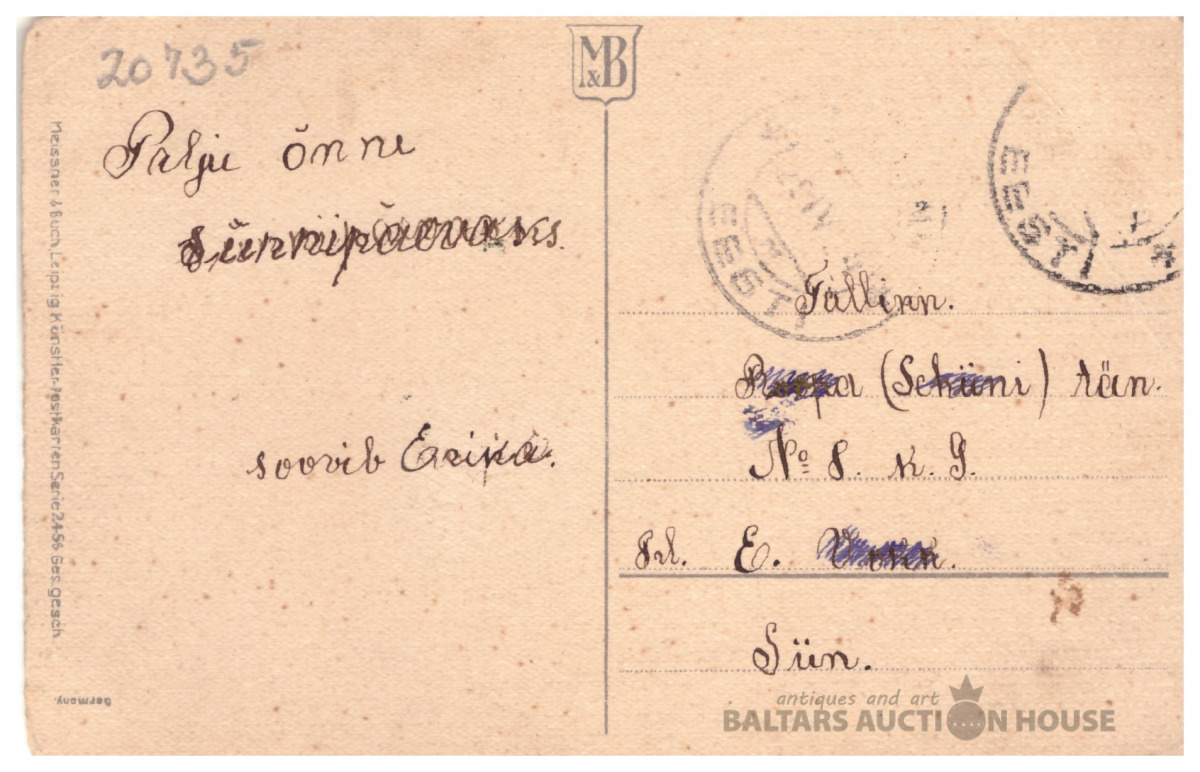 20735
M&B
Palju õnne
Sünnipäevaks.
soovib Erika.
Meissner & Buch, Leipzig Künstler-Postkarten Serie 2456 Ges. gesch.
Germany.
EESTI
EESTI
Tallinn.
(Schüni) tän.
№ 8. k. 9.
Prl. E.
Siin.
antiques and art
BALTARS AUCTION HOUSE